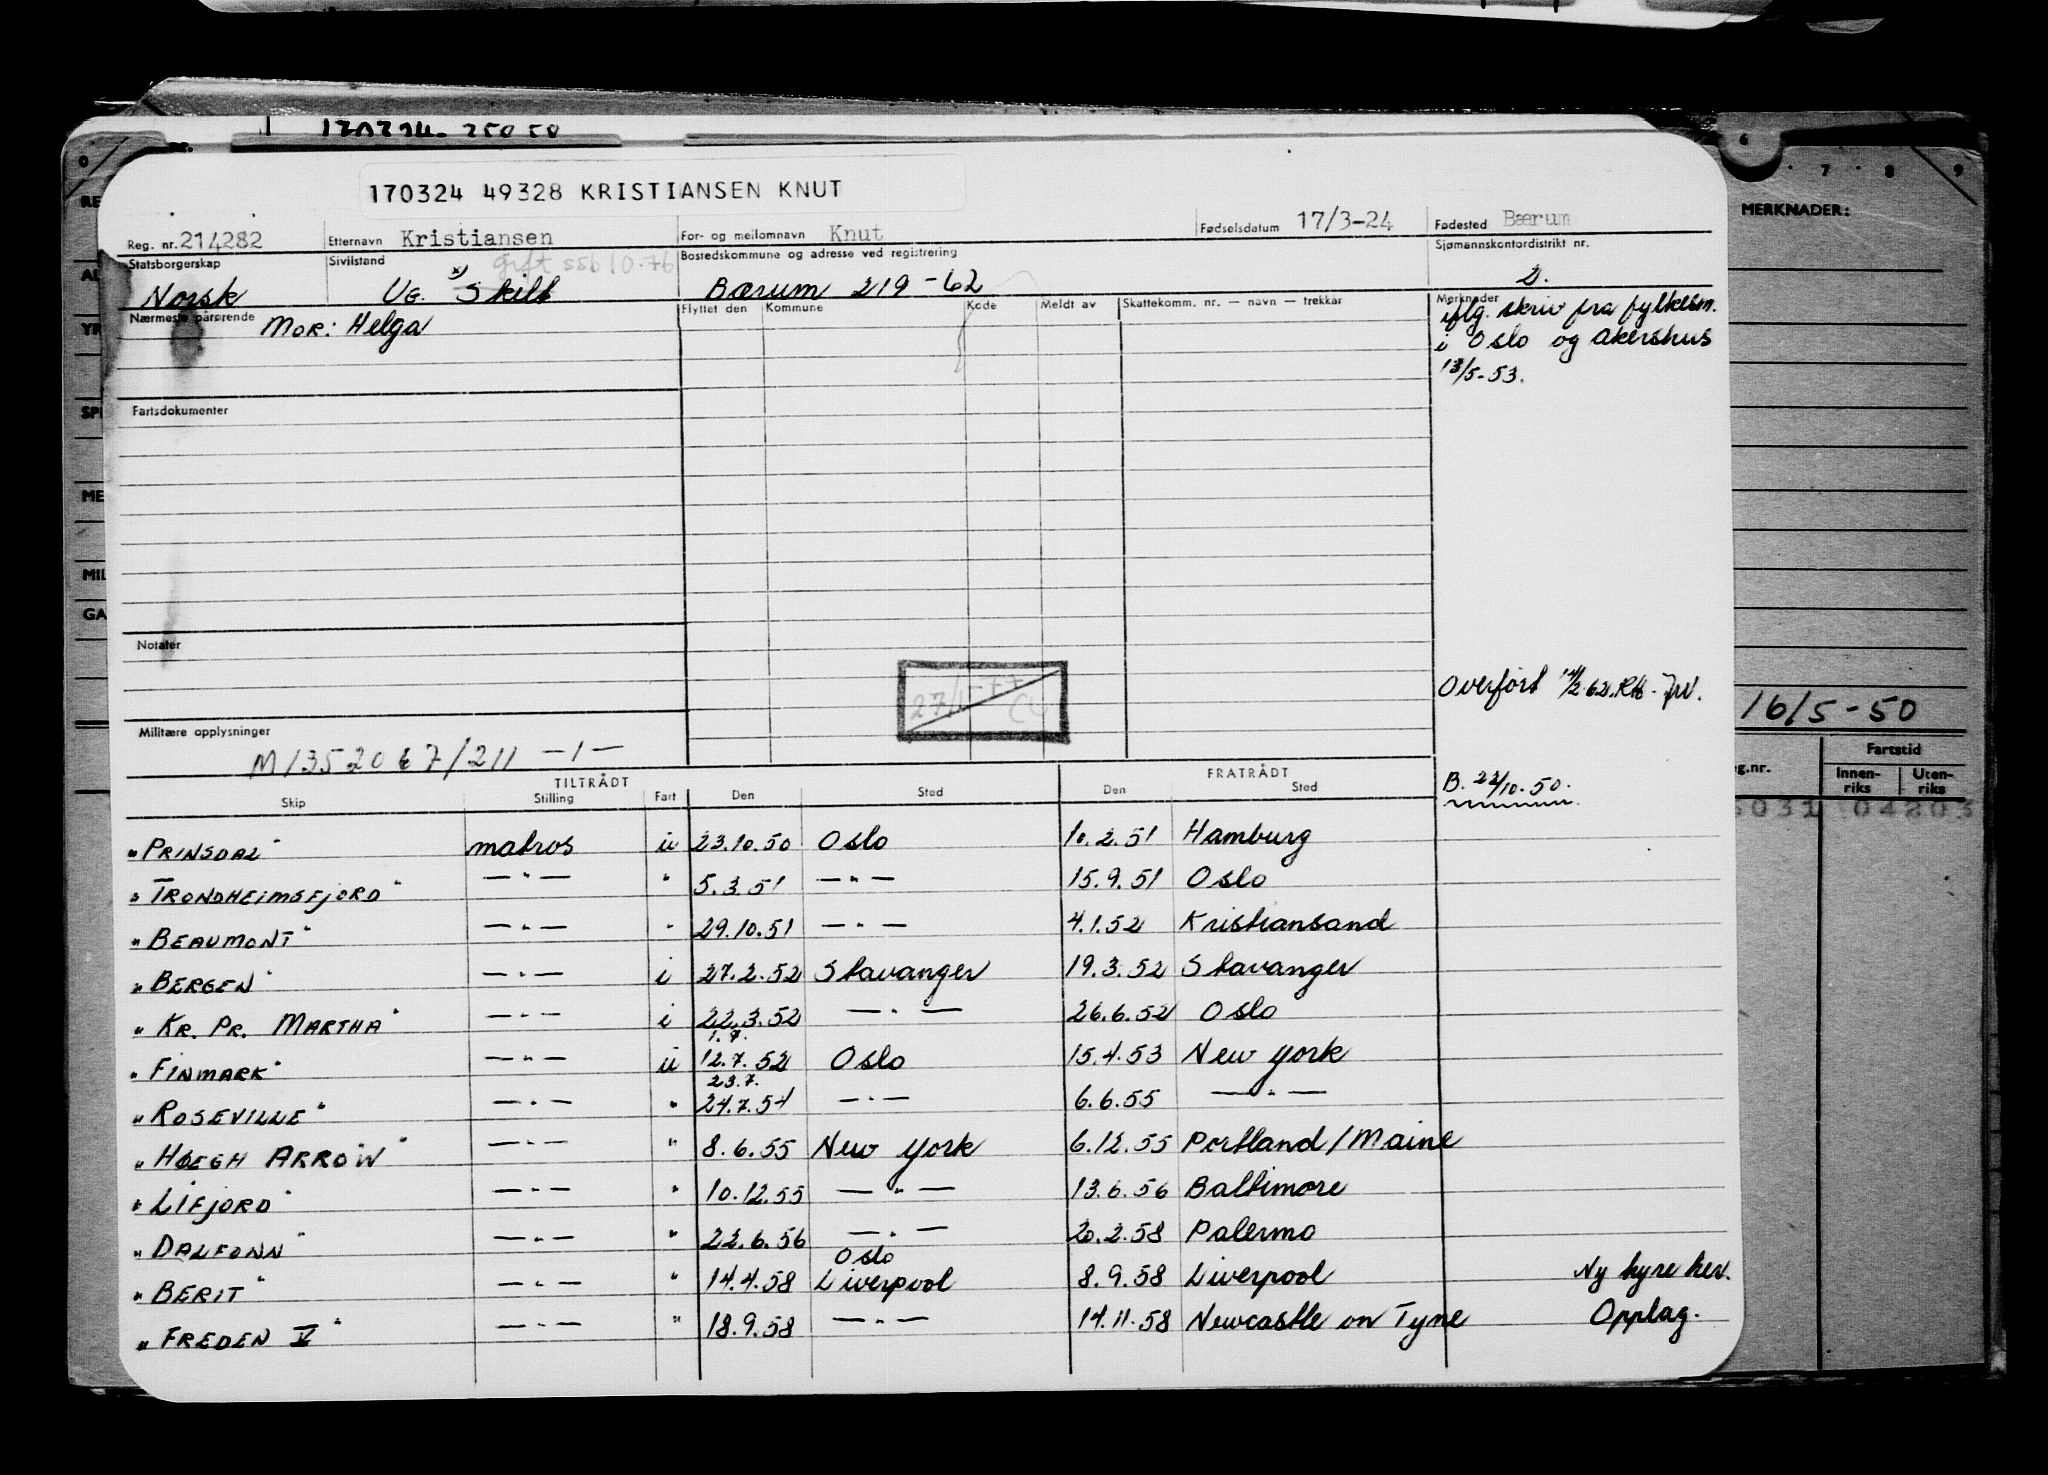 170324 49328 KRISTIANSEN KNUT
Reg. nr. 214282 Etternavn Kristiansen For- og mellomnavn Knut Fødselsdatum 17/3-24 Fødested Bærum
Statsborgerskap Norsk Sivilstand Ug. x) Skilt gift ssb 10.76 Bostedskommune og adresse ved registrering Bærum 219-62 Sjømannskontordistrikt nr. 2.
Nærmeste pårørende Mor: Helga Flyttet den Kommune Kode Meldt av Skattekomm. nr. — navn — trekkår Merknader
iflg. skriv fra fylkesm.
i Oslo og Akershus
13/5-53.
Fartsdokumenter
Notater
27/1-77
Overført 14/2.62. RH.
Militære opplysninger
M1352067/211 -1-
TILTRÅDT FRATRÅDT
Skip Stilling Fart Den Sted Den Sted
B. 23/10.50.
"PRINSDAL" matros u 23.10.50 Oslo 10.2.51 Hamburg
"TRONDHEIMSFJORD" —"— " 5.3.51 —"— 15.9.51 Oslo
"BEAUMONT" —"— " 29.10.51 —"— 4.1.52 Kristiansand
"BERGEN" —"— i 27.2.52 Stavanger 19.3.52 Stavanger
"KR. PR. MARTHA" —"— i 22.3.52 —"— 26.6.52 Oslo
1.7.
"FINMARK" —"— u 12.7.52 Oslo 15.4.53 New York
23.7.
"ROSEVILLE" —"— " 24.7.54 —"— 6.6.55 —"—
"HØEGH ARROW" —"— " 8.6.55 New York 6.12.55 Portland/Maine
"LIFJORD" —"— " 10.12.55 —"— 13.6.56 Baltimore
"DALFONN" —"— " 22.6.56 —"— 20.2.58 Palermo
Oslo
"BERIT" —"— " 14.4.58 Liverpool 8.9.58 Liverpool Ny hyre her.
"FREDEN V" —"— " 18.9.58 —"— 14.11.58 Newcastle on Tyne Opplag.
6 7 8 9
MERKNADER:
16/5-50
Fartstid
g.nr. Innen-riks Uten-riks
5031 04203
0
RE
AL
YR
SPR
ME
MIL
GA